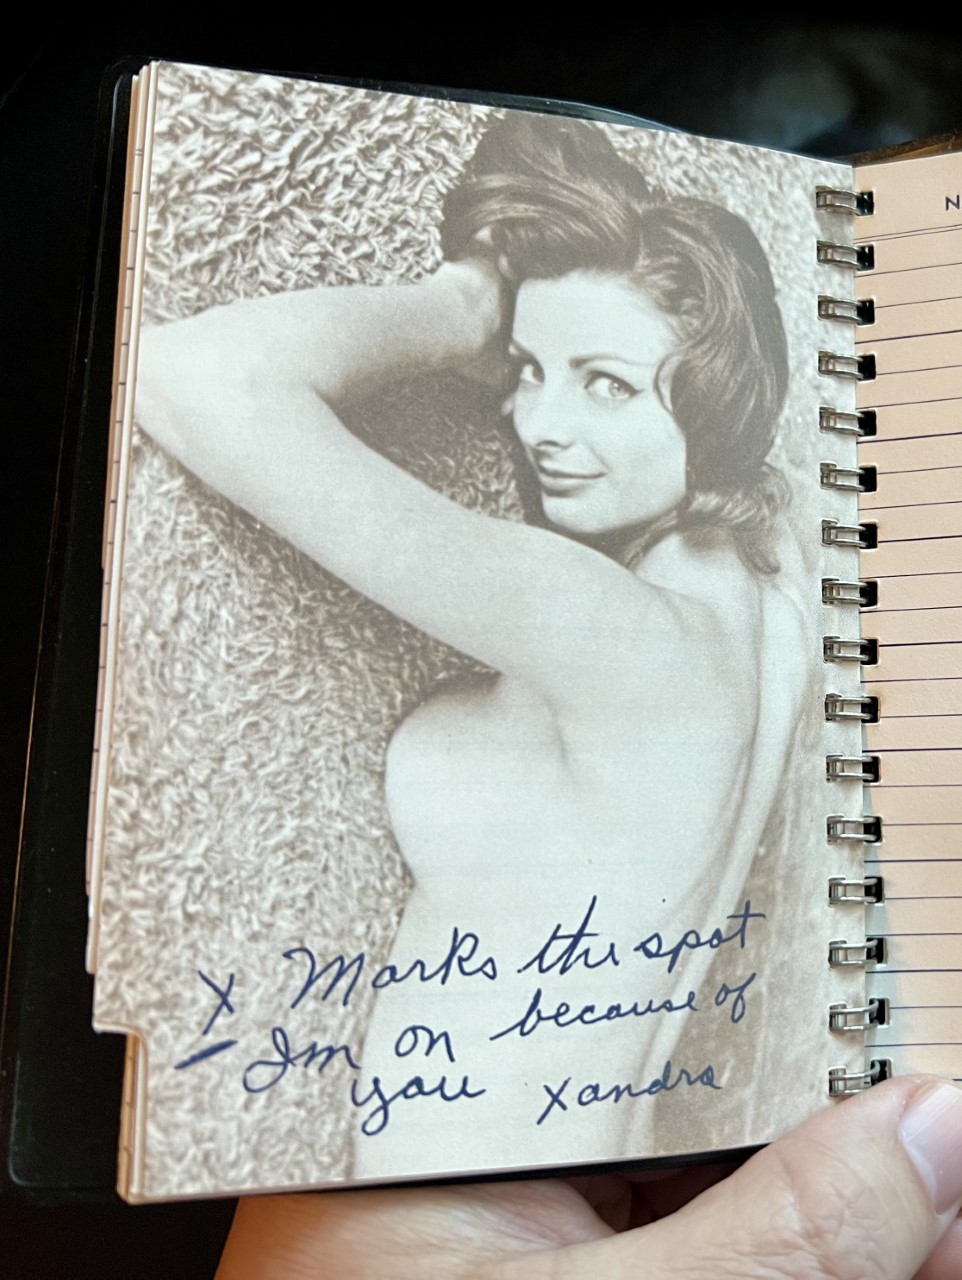 X Marks the spot
— Im on because of
you Xandra
N